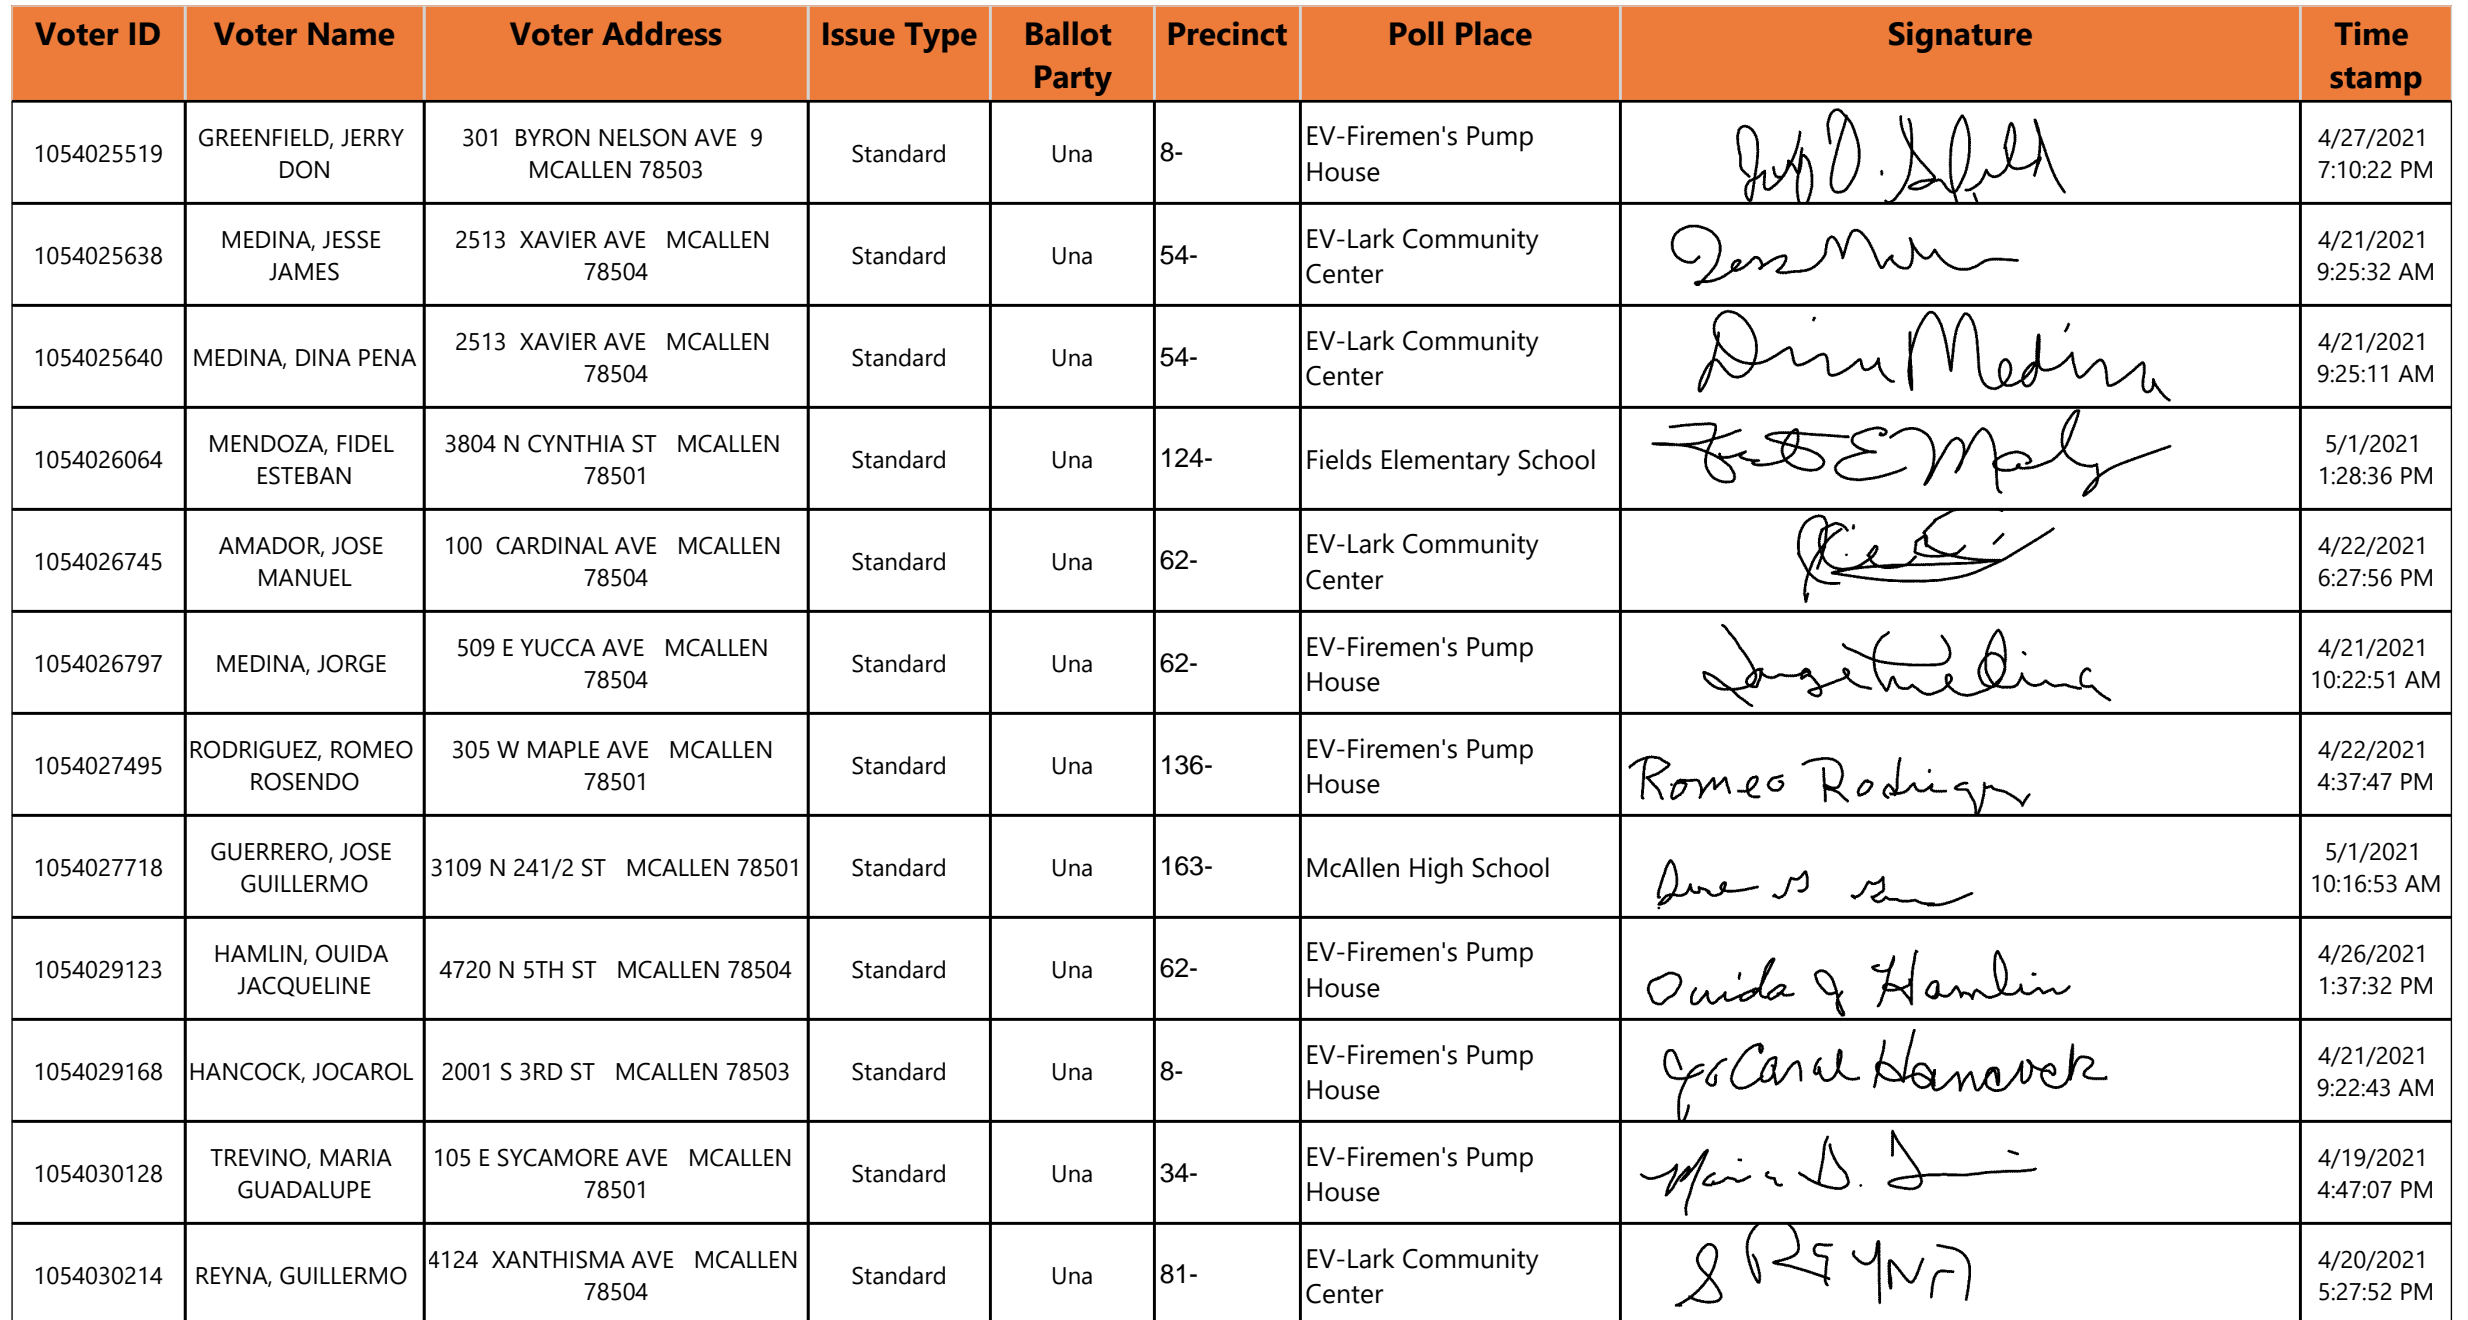 Voter ID Voter Name Voter Address Issue Type Ballot Party Precinct Poll Place Signature Time stamp
1054025519 GREENFIELD, JERRY DON 301 BYRON NELSON AVE 9 MCALLEN 78503 Standard Una 8- EV-Firemen's Pump House 4/27/2021 7:10:22 PM
1054025638 MEDINA, JESSE JAMES 2513 XAVIER AVE MCALLEN 78504 Standard Una 54- EV-Lark Community Center 4/21/2021 9:25:32 AM
1054025640 MEDINA, DINA PENA 2513 XAVIER AVE MCALLEN 78504 Standard Una 54- EV-Lark Community Center Dina Medina 4/21/2021 9:25:11 AM
1054026064 MENDOZA, FIDEL ESTEBAN 3804 N CYNTHIA ST MCALLEN 78501 Standard Una 124- Fields Elementary School 5/1/2021 1:28:36 PM
1054026745 AMADOR, JOSE MANUEL 100 CARDINAL AVE MCALLEN 78504 Standard Una 62- EV-Lark Community Center 4/22/2021 6:27:56 PM
1054026797 MEDINA, JORGE 509 E YUCCA AVE MCALLEN 78504 Standard Una 62- EV-Firemen's Pump House Jorge Medina 4/21/2021 10:22:51 AM
1054027495 RODRIGUEZ, ROMEO ROSENDO 305 W MAPLE AVE MCALLEN 78501 Standard Una 136- EV-Firemen's Pump House Romeo 4/22/2021 4:37:47 PM
1054027718 GUERRERO, JOSE GUILLERMO 3109 N 241/2 ST MCALLEN 78501 Standard Una 163- McAllen High School 5/1/2021 10:16:53 AM
1054029123 HAMLIN, OUIDA JACQUELINE 4720 N 5TH ST MCALLEN 78504 Standard Una 62- EV-Firemen's Pump House Ouida J Hamlin 4/26/2021 1:37:32 PM
1054029168 HANCOCK, JOCAROL 2001 S 3RD ST MCALLEN 78503 Standard Una 8- EV-Firemen's Pump House JoCarol Hancock 4/21/2021 9:22:43 AM
1054030128 TREVINO, MARIA GUADALUPE 105 E SYCAMORE AVE MCALLEN 78501 Standard Una 34- EV-Firemen's Pump House Maria 4/19/2021 4:47:07 PM
1054030214 REYNA, GUILLERMO 4124 XANTHISMA AVE MCALLEN 78504 Standard Una 81- EV-Lark Community Center REYNA 4/20/2021 5:27:52 PM